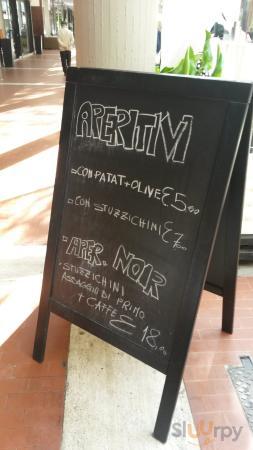 APERITIVI
CON PATAT + OLIVE € 5.00
CON STUZZICHINI € 7.00
APER. NOIR
STUZZICHINI
ASSAGGIO DI PRIMO
+ CAFFE € 18.00
Sluurpy